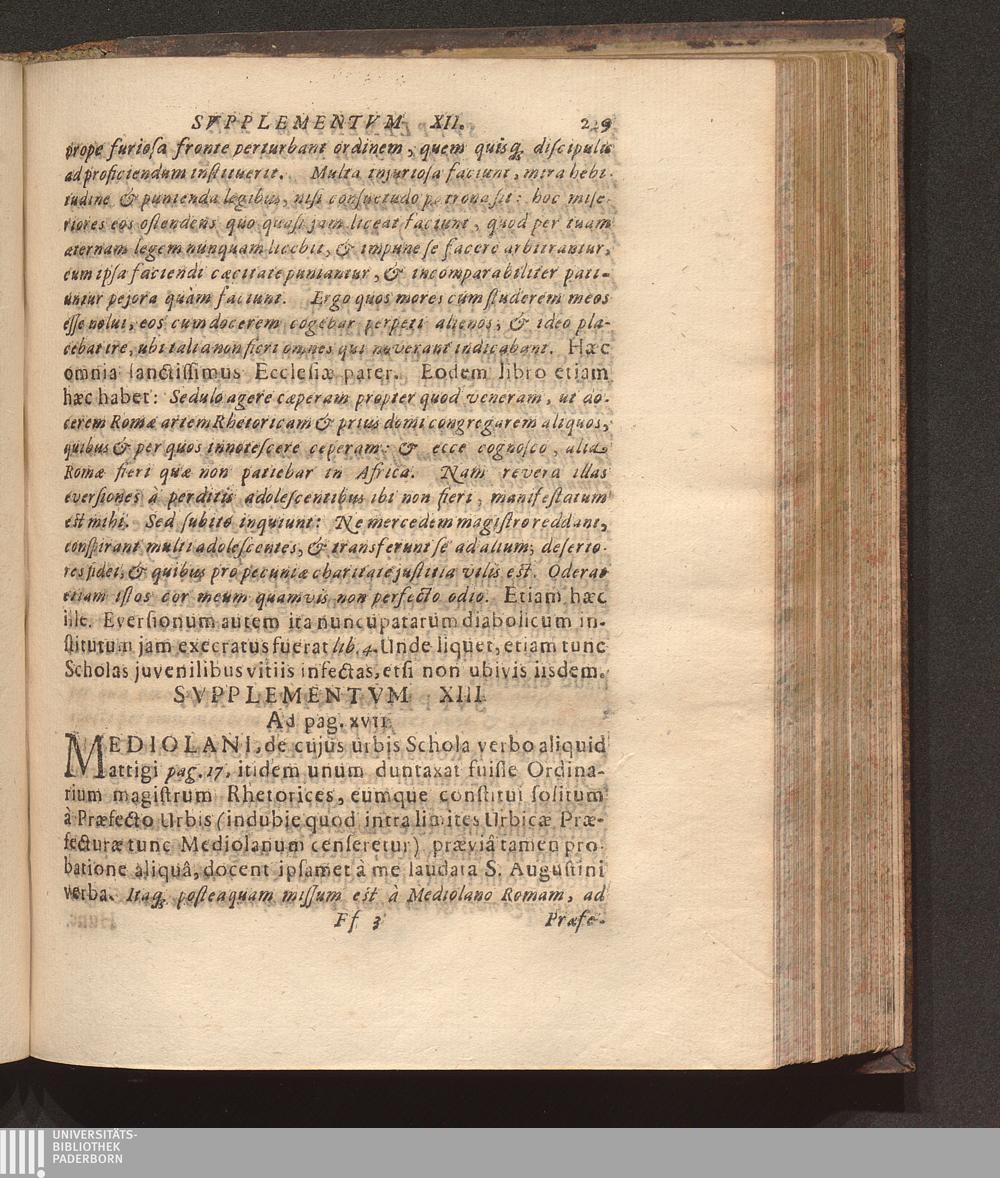 SVPPLEMENTVM XII. 229
prope furiosa fronte perturbant ordinem, quem quisq; discipulis
ad proficiendum instituerit. Multa injuriosa faciunt, mira hebe-
tudine & punienda legibus, nisi consuetudo patrona sit: hoc mise-
riores eos ostendens quo quasi jam liceat faciunt, quod per tuam
æternam legem nunquam licebit, & impune se facere arbitrantur,
cum ipsa faciendi cæcitate puniantur, & incomparabiliter pati-
untur pejora quàm faciunt. Ergo quos mores cùm studerem meos
esse nolui, eos cum docerem cogebar perpeti alienos, & ideo pla-
cebat ire, ubi talia non fieri omnes qui noverant indicabant. Hæc
omnia sanctissimus Ecclesiæ pater. Eodem libro etiam
hæc habet: Sedulo agere cæperam propter quod veneram, ut do-
cerem Romæ artem Rhetoricam & prius domi congregarem aliquos,
quibus & per quos innotescere ceperam: & ecce cognosco, alia
Romæ fieri quæ non patiebar in Africa. Nam revera illas
eversiones à perditis adolescentibus ibi non fieri, manifestatum
est mihi. Sed subitò inquiunt: Ne mercedem magistro reddant,
conspirant multi adolescentes, & transferunt se ad alium, deserto-
res fidei, & quibus pro pecuniæ charitate justitia vilis est. Oderat
etiam istos cor meum quamvis non perfecto odio. Etiam hæc
ille. Eversionum autem ita nuncupatarum diabolicum in-
stitutum jam execratus fuerat lib. 4. Unde liquet, etiam tunc
Scholas juvenilibus vitiis infectas, etsi non ubivis iisdem.
SVPPLEMENTVM XIII.
Ad pag. xvii.
MEDIOLANI, de cujus urbis Schola verbo aliquid
attigi pag. 17, itidem unum duntaxat fuisse Ordina-
rium magistrum Rhetorices, eumque constitui solitum
à Præfecto Urbis (indubie quod intra limites Urbicæ Præ-
fecturæ tunc Mediolanum censeretur) præviâ tamen pro-
batione aliquâ, docent ipsamet à me laudata S. Augustini
verba. Itaq; posteaquam missum est à Mediolano Romam, ad
Ff 3 Præfe-
UNIVERSITÄTS-
BIBLIOTHEK
PADERBORN